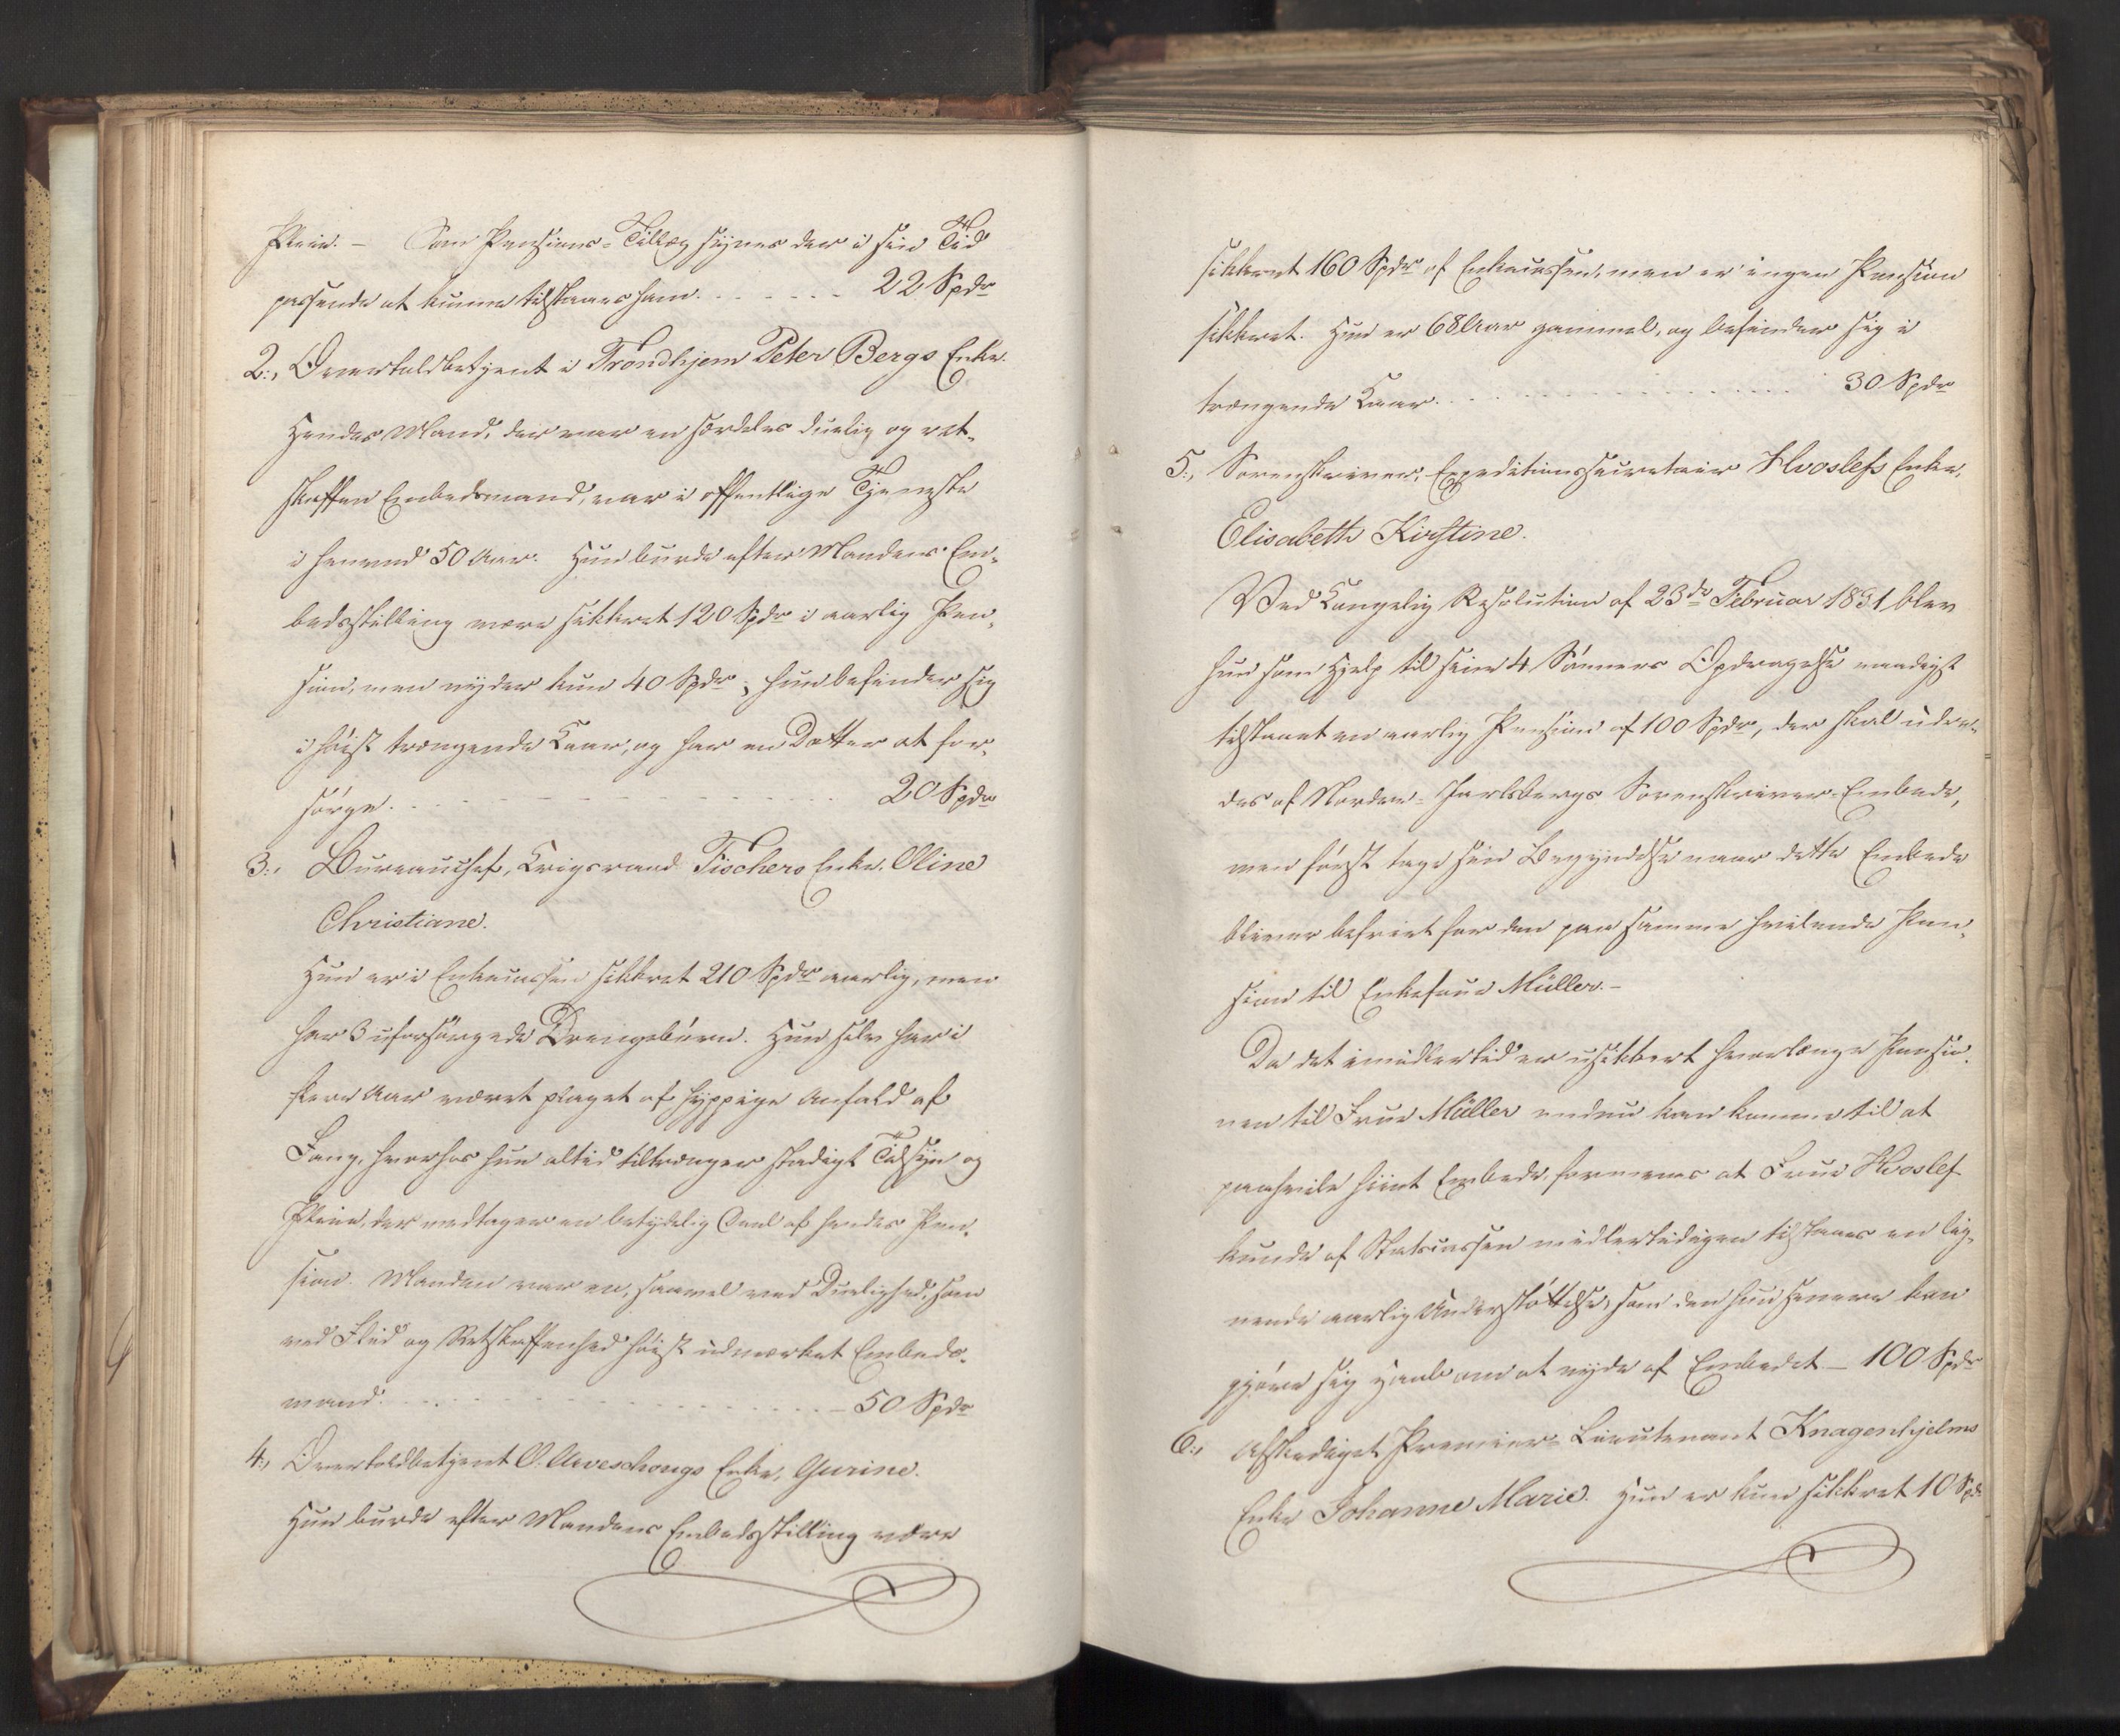 Pleie. – Som Pensions-Tillæg synes der i sin Tid
passende at kunne tilstaaes ham. . . . . . . 22 Spdr
2., Overtoldbetjent i Trondhjem Peter Bergs Enke.
Hendes Mand, der var en særdeles duelig og ret-
skaffen Embedsmand, var i offentlige Tjeneste
i henved 50 Aar. Hun burde efter Mandens Em-
bedsstilling være sikkret 120 Spdr i aarlig Pen-
sion, men nyder kun 40 Spdr; hun befinder sig
i høist trængende Kaar, og har en Datter at for-
sørge. . . . . . . . . . 20 Spdr
3., Bureauchef, Krigsraad Fischers Enke, Oline
Christiane.
Hun er i Enkecassen sikkret 210 Spdr aarlig, men
har 3 uforsørgede Drengebørn. Hun selv har i
flere Aar været plaget af hyppige Anfald af
hvorhos hun altid tiltrænger stadigt Tilsyn og
Pleie, der medtager en betydelig Deel af hendes Pen-
sion. Manden var en, saavel ved Duelighed, som
ved Flid og Retskaffenhed høist udmærket Embeds-
mand. . . . . . . . . . – 50 Spdr
4., Overtoldbetjent O. Aaveschougs Enke, Gurine.
Hun burde efter Mandens Embedsstilling være
sikkret 160 Spdr af Enkecassen, men er ingen Pension
sikkret. Hun er 68 Aar gammel, og befinder sig i
trængende Kaar. . . . . . . . . . 30 Spdr
5., Sorenskriver, Expeditionssecretair Hvoslefs Enke,
Elisabeth Kirstine.
Ved Kongelig Resolution af 23de Februar 1831 blev
hun som Hjelp til sine 4 Sønners Opdragelse naadigst
tilstaaet en aarlig Pension af 100 Spdr, der skal udre-
des af Nordre-Jarlsbergs Sorenskriver-Embede,
men først tage sin Begyndelse naar dette Embede
bliver befriet for den paa samme hvilende Pen-
sion til Enkefrue Müller. –
Da det imidlertid er usikkert hvorlænge Pensio-
nen til Frue Müller endnu kan komme til at
paahvile hiint Embede, formenes at Frue Hvoslef
kunde af Statscassen midlertidigen tilstaaes en lig-
nende aarlig Understøttelse, som den hun senere kan
gjøre sig Haab om at nyde af Embedet – 100 Spdr
6., Afskediget Premier-Lieutenant Knagenhjelms
Enke Johanne Marie. Hun er kun sikkret 10 Spd